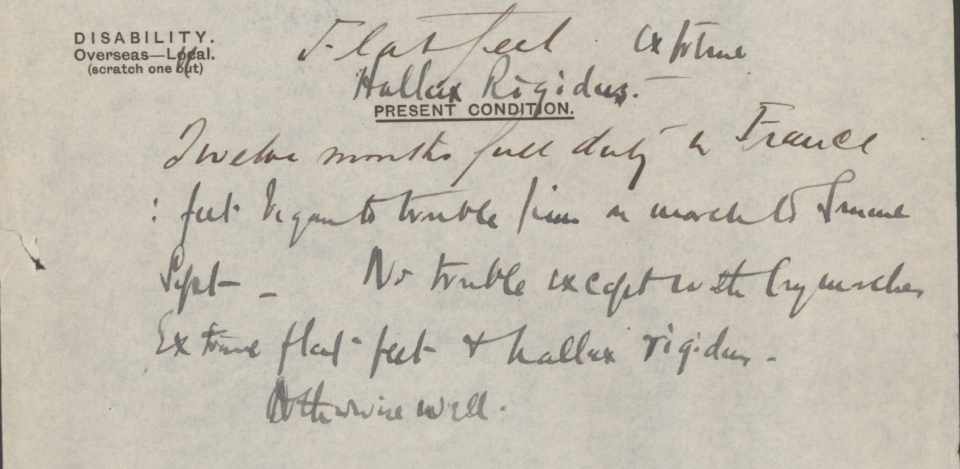 DISABILITY.
Overseas—Local.
(scratch one out)
Flat feet extreme
Hallux Rigidus.
PRESENT CONDITION.
Twelve months full duty in France
: feet began to trouble him on march to Somme
Sept - No trouble except with long marches
Extreme flat feet & hallux rigidus.
Otherwise well.